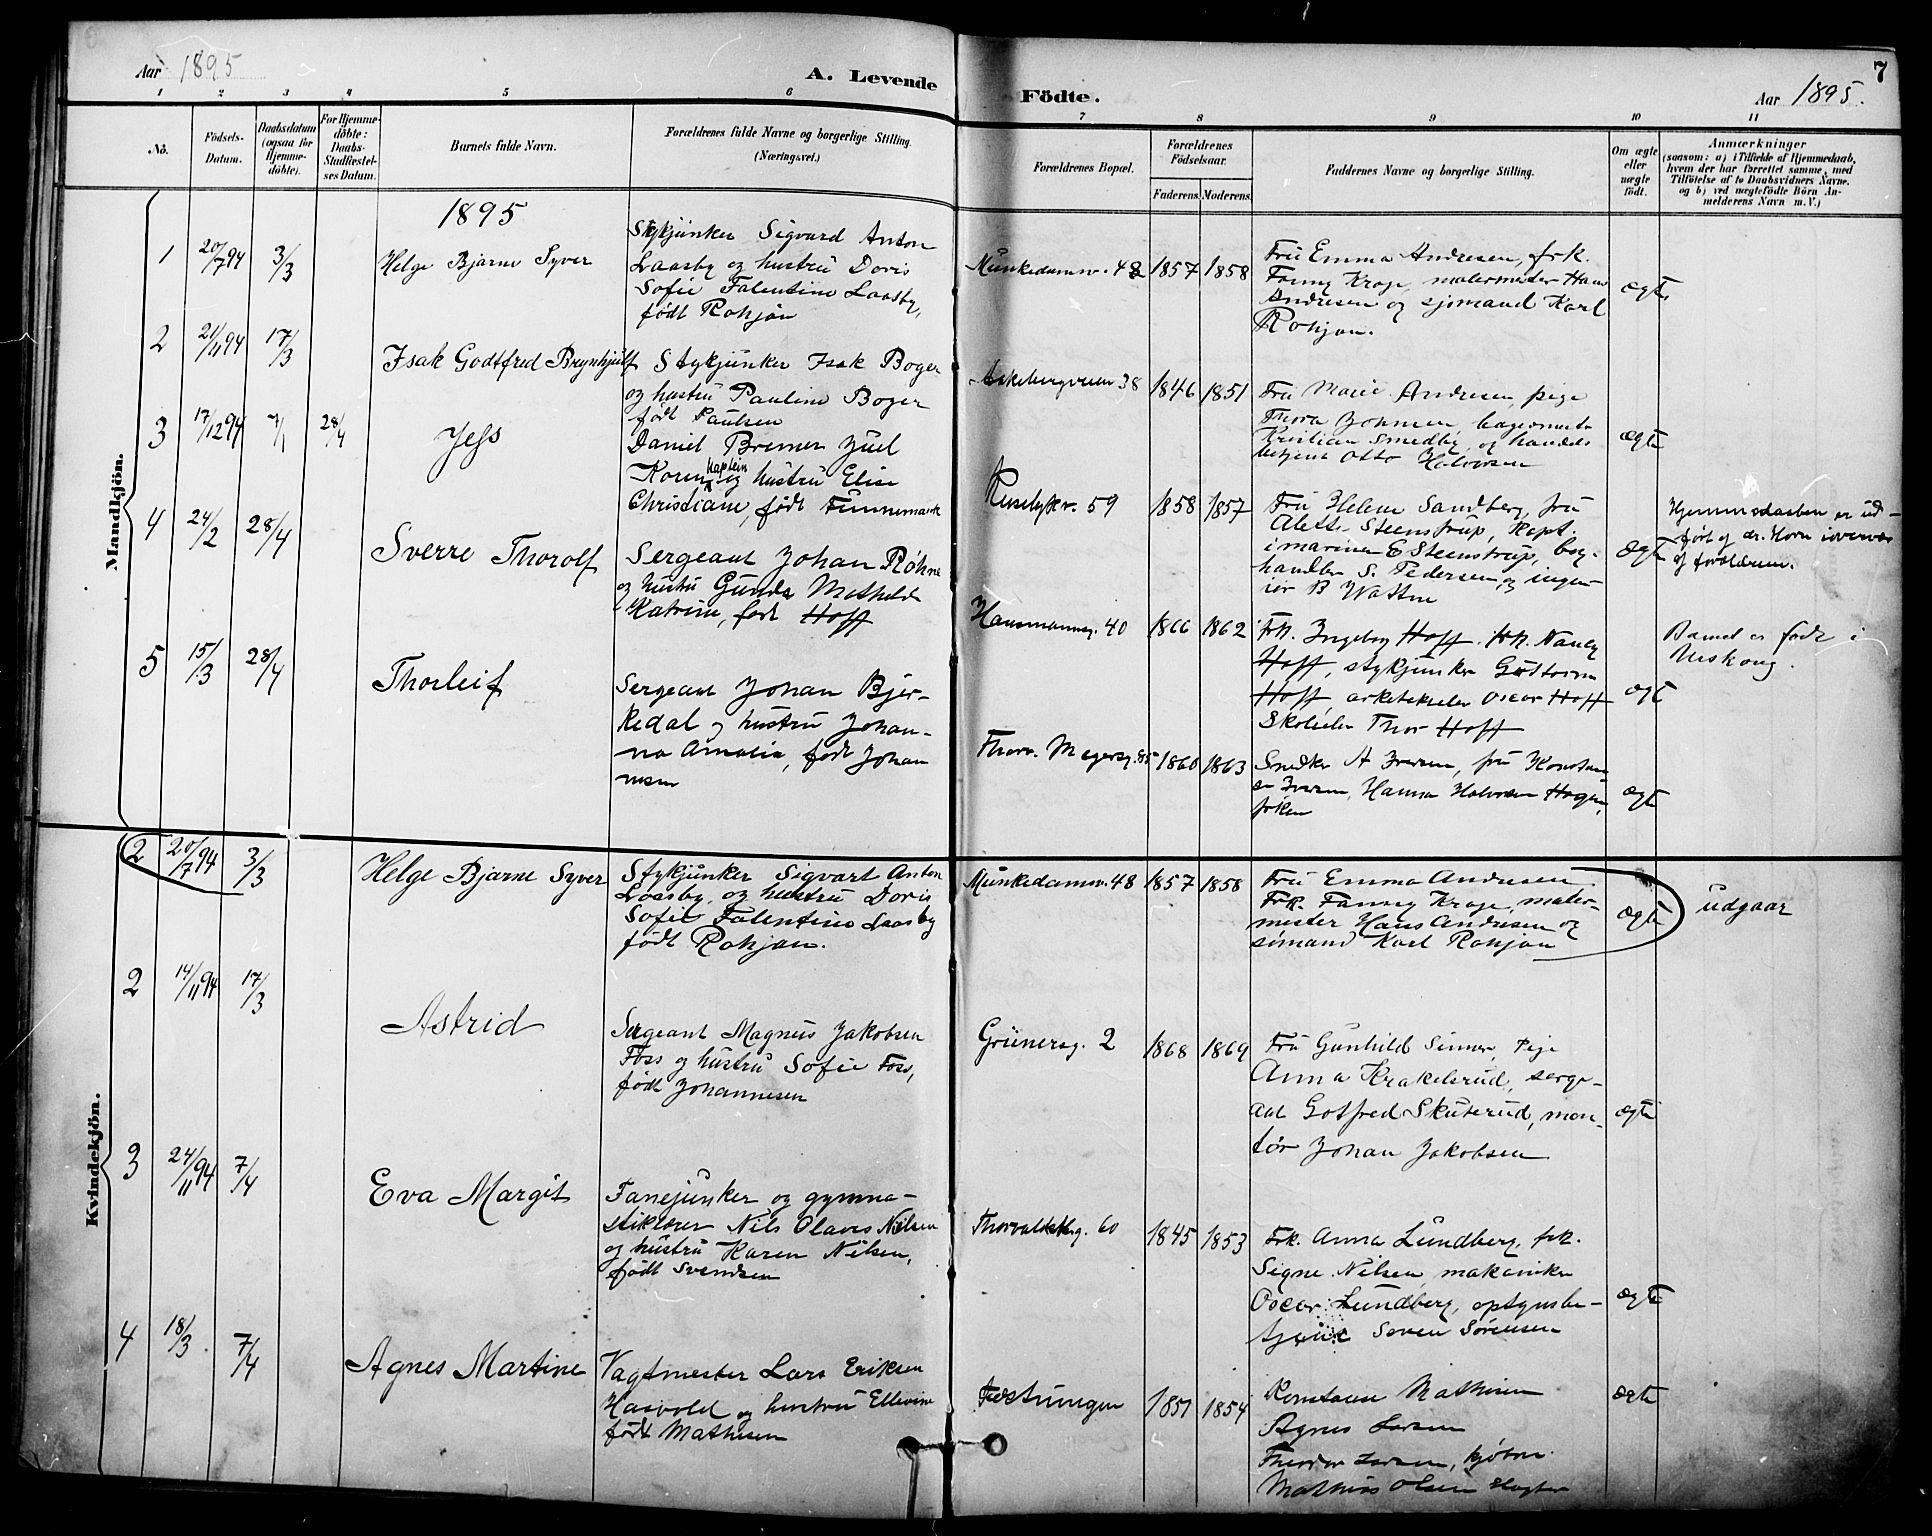 Aar 1895
A. Levende
1 2 3 4 5 6
No.
Födsels-
Datum.
Daabsdatum
(ogsaa for
Hjemme-
döbte).
For Hjemme-
döbte:
Daabs-
Stadfæstel-
ses Datum.
Barnets fulde Navn.
Forældrenes fulde Navne og borgerlige Stilling.
(Næringsvei.)
Mandkjön.
1895
1 20/7 94 3/3 Helge Bjarne Syver
Stykjunker Sigvard Anton
Laasby og hustru Doris
Sofie Falentine Laasby,
født Rohjan
2 21/11 94 17/3 Isak Godtfred Brynhjulf
Stykjunker Isak Boger
og hustru Pauline Boger
født Paulsen
3 17/12 94 7/1 28/4 Jess
Daniel Bremer Juel
Koren kaptein og hustru Elise
Christiane, født Finnemark
4 24/2 28/4 Sverre Thorolf
Sergeant Johan Røhne
og hustru Gunda Mathilde
Katrine, født Hoff
5 15/3 28/4 Thorleif
Sergeant Johan Bjer-
kedal og hustru Johan-
na Amalia, født Johan
nesen
Kvindekjön.
2 20/7 94 3/3 Helge Bjarne Syver
Stykjunker Sigvart Anton
Laasby, og hustru Doris
Sofie Falentine Laasby
født Rohjan.
2 14/11 94 17/3 Astrid
Sergeant Magnus Jakobsen
Foss og hustru Sofie Foss,
født Johannesen
3 24/11 94 7/4 Eva Margit
Fanejunker og gymna-
stiklærer Nils Olaves Nilsen
og hustru Karen Nilsen,
født Svendsen
4 18/3 7/4 Agnes Martine
Vagtmester Lars Eriksen
Hasvold og hustru Ellevine
født Mathisen
7
Födte.
Aar 1895.
7 8 9 10 11
Forældrenes Bopæl.
Forældrenes
Födselsaar.
Faderens. Moderens.
Faddernes Navne og borgerlige Stilling.
Om ægte
eller
uægte
födt.
Anmærkninger
(saasom: a) i Tilfælde af Hjemmedaab,
hvem der har forrettet samme, med
Tilföielse af to Daabsvidners Navne,
og b) ved uægtefödte Börn An-
melderens Navn m.V.)
Munkedamsv. 48 1857 1858
Fru Emma Andresen, frk.
Fanny Kroge, malermester Hans
Andresen og sjømand Karl
Rohjan.
ægte
Akebergveien 38 1846 1851
Fru Marie Andresen, pige
Thora Johnsen, bagermester
Kristian Smedby, og handels
betjent Otto Halvorsen
ægte
Ruseløkv. 59 1858 1857
Fru Helene Sandberg, fru
Alette Steenstrup, Kapt.
i marinen E Steenstrup, bog-
handler S. Pedersen, og ingen-
iør B Watne
ægte
Hjemmedaaben er ud-
ført af dr. Horn i overvær
af forældrene.
Hausmannsg. 40 1866 1862
Frk. Ingeborg Hoff. frk. Nancy
Hoff, stykjunker Guttorm
Hoff, arkitektelev Oscar Hoff
Skoleelev Thor Hoff
ægte
Barnet er født i
Urskoug.
Thorv. Meyersg. 85 1860 1863
Snedker A Iversen, fru Konstan-
se Iversen, Hanna Halvorsen Hagen,
frøken
ægte
Munkedamsv. 48 1857 1858
Fru Emma Andresen
Frk. Fanny Kroge, maler-
mester Hans Andresen og
sømand Karl Rohjan
ægte
udgaar
Grünersg. 2 1868 1869
Fru Gunhild Simer, Pige
Anna Krakelsrud, serge-
ant Gotfred Skuterud, mon-
tør Johan Jakobsen
ægte
Thorvaldsbg. 60 1845 1853
Frk. Anna Lundberg, frk.
Signe Nilsen, makaniker
Oscar Lundberg, opsynsbe-
tjent Søren Sørensen
ægte
Festningen 1851 1854
Konstanse Mathisen
Agnes Larsen
Theodor Larsen, kjøbm.
Mathias Olsen slagter
ægte